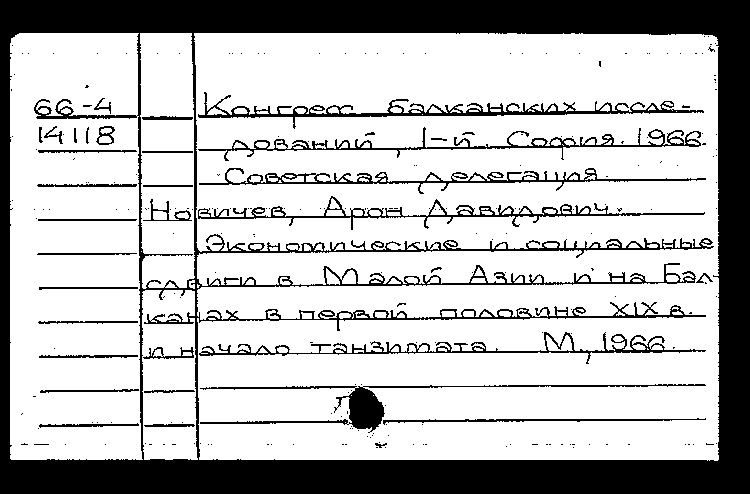 66-4 Конгресс балканских иссле-
14118 дований, I-й. София. 1966.
Советская делегация.
Новичев, Арон Давидович.
Экономические и социальные
сдвиги в Малой Азии и на Бал-
канах в первой половине XIX в.
и начало танзимата. М., 1966.